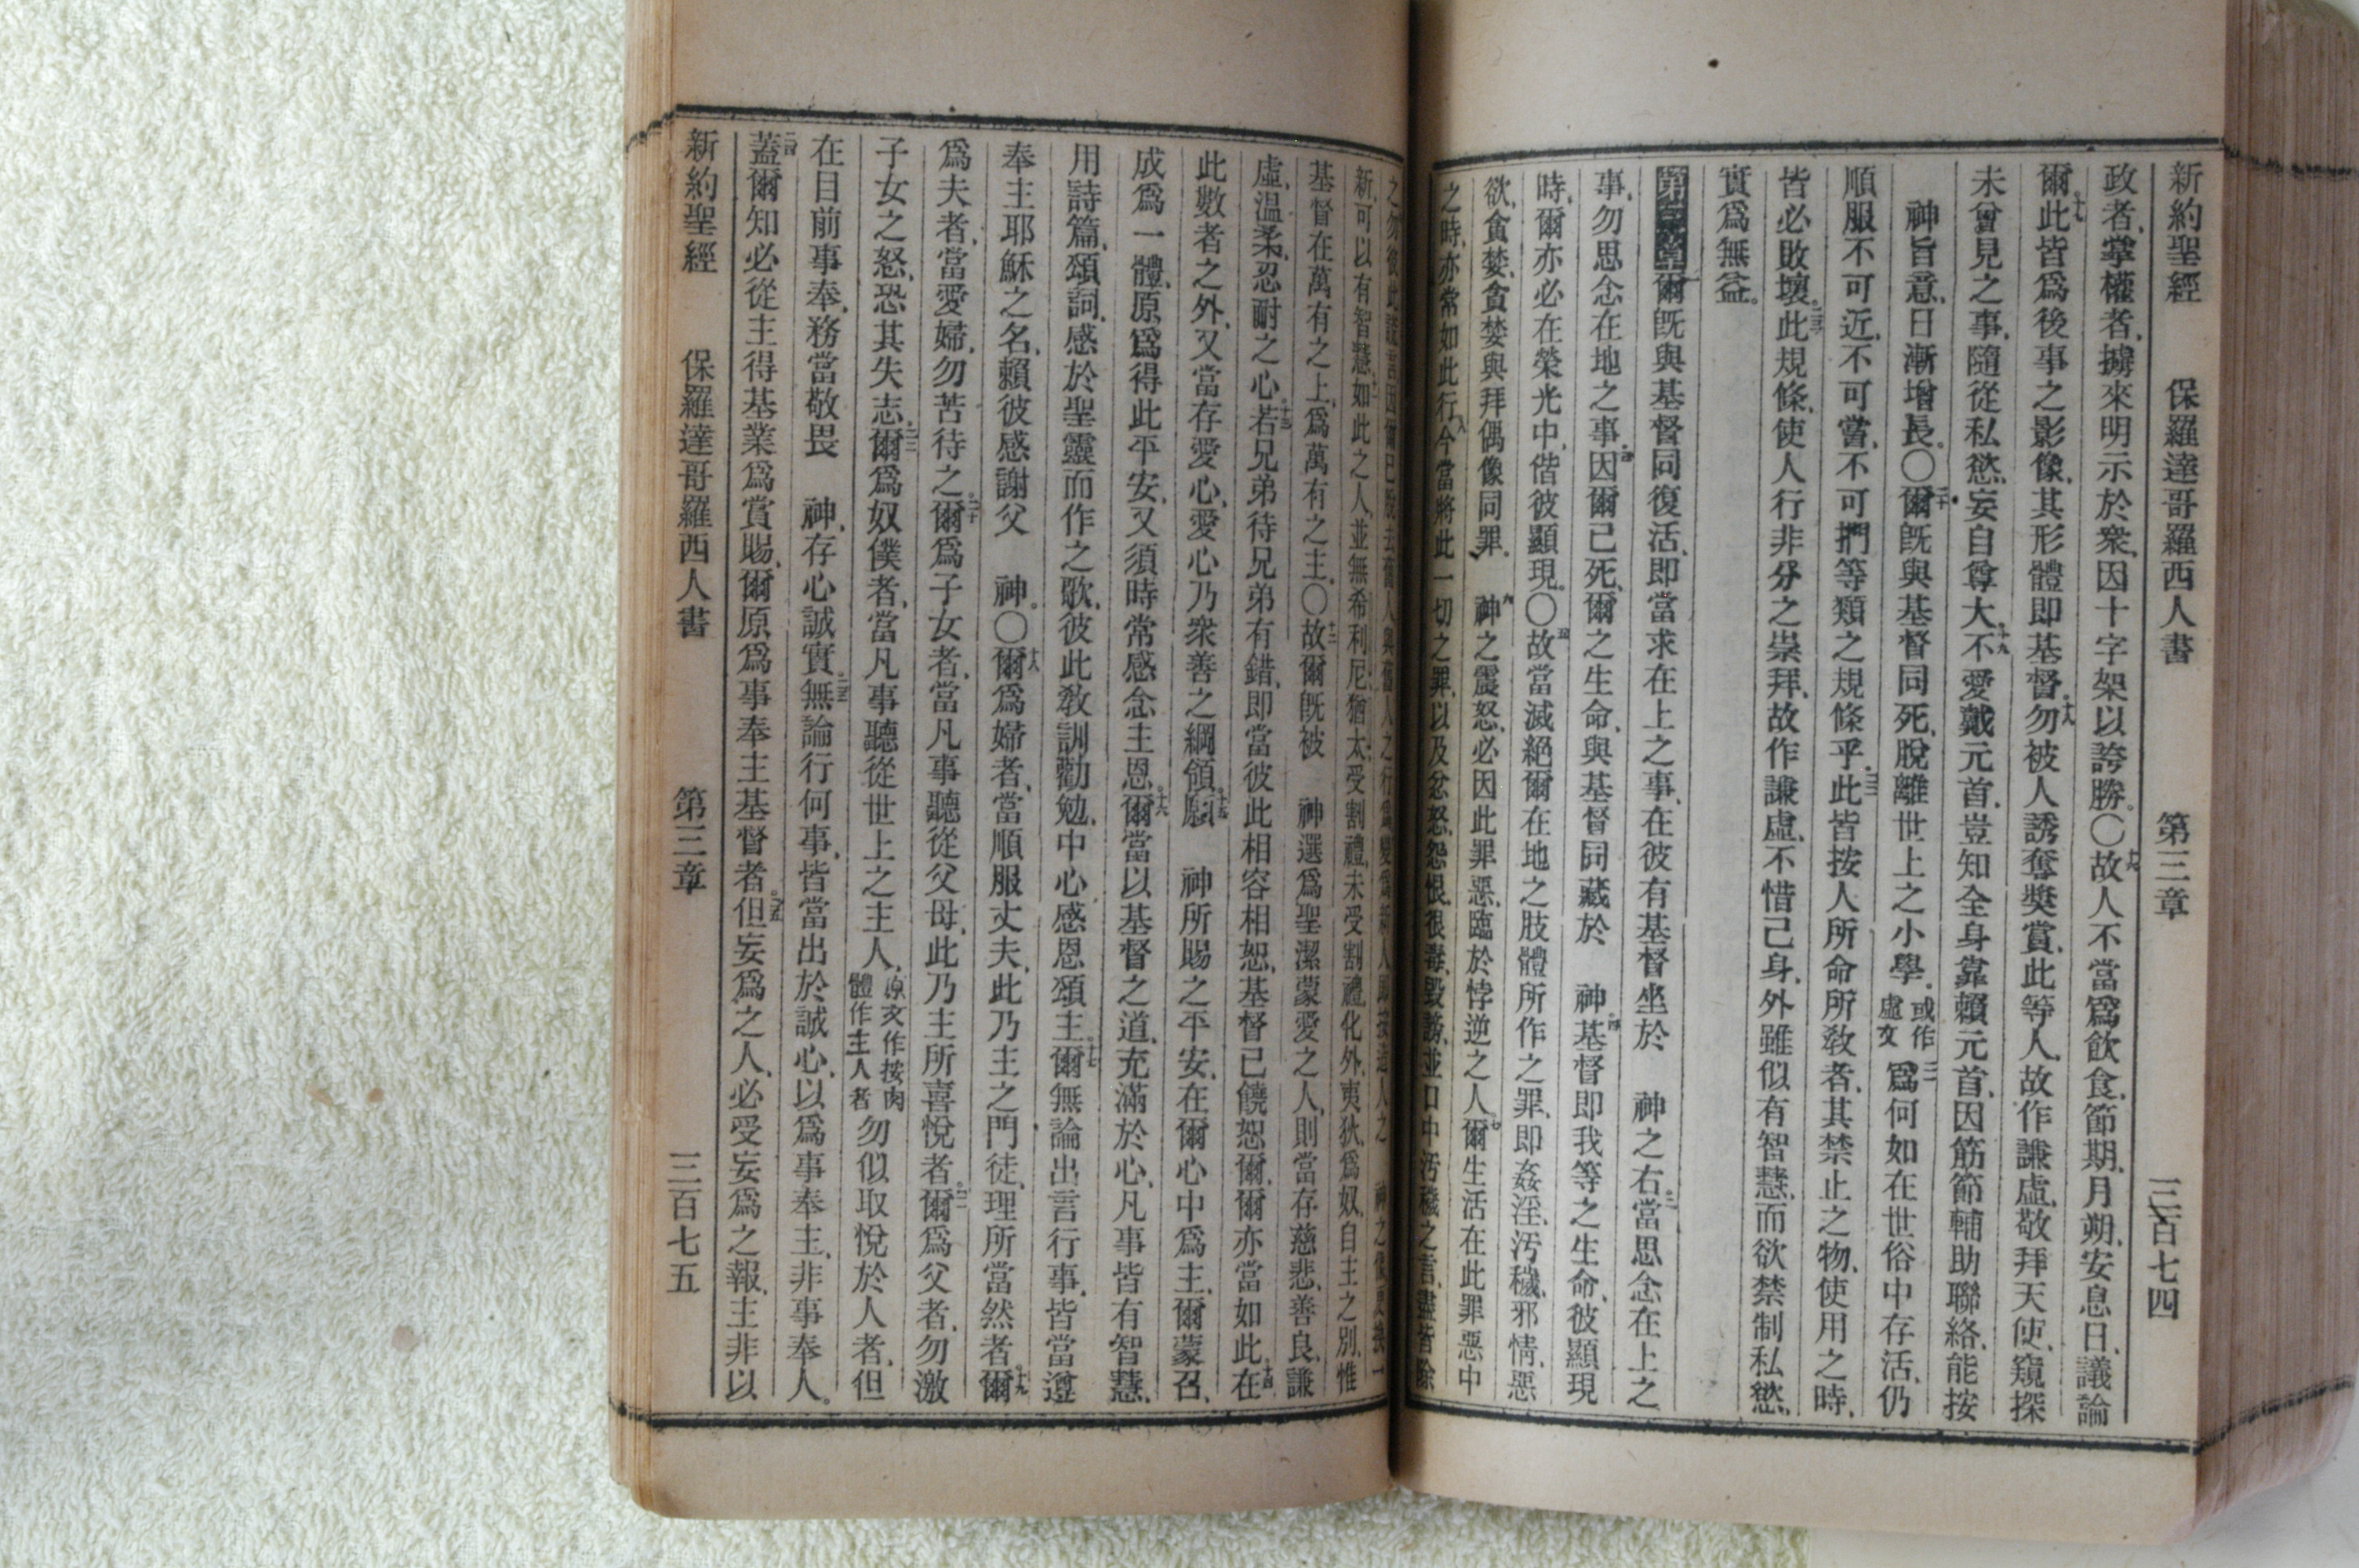 新約聖經 保羅達哥羅西人書 第三章 三百七四
政者、掌權者、擄來明示於衆、因十字架以誇勝。〇十六故人不當爲飲食、節期、月朔、安息日、議論
爾。十七此皆爲後事之影像、其形體即基督。十八勿被人誘奪獎賞、此等人、故作謙虛、敬拜天使、窺探
未曾見之事、隨從私慾、妄自尊大、十九不愛戴元首、豈知全身靠賴元首、因筋節輔助聯絡、能按
神旨意、日漸增長。〇二十爾旣與基督同死、脫離世上之小學。或作虛文 二一爲何如在世俗中存活、仍
順服不可近、不可嘗、不可捫等類之規條乎。二二此皆按人所命所敎者、其禁止之物、使用之時、
皆必敗壞。二三此規條、使人行非分之崇拜、故作謙虛、不惜己身、外雖似有智慧、而欲禁制私慾、
實爲無益。
第三章 一爾旣與基督同復活、即當求在上之事、在彼有基督坐於 神之右。二當思念在上之
事、勿思念在地之事。三因爾已死、爾之生命、與基督同藏於 神。四基督即我等之生命、彼顯現
時、爾亦必在榮光中、偕彼顯現。〇五故當滅絕爾在地之肢體所作之罪、即姦淫、汚穢、邪情、惡
欲、貪婪、貪婪與拜偶像同罪。六 神之震怒、必因此罪惡、臨於悖逆之人。七爾生活在此罪惡中
之時、亦常如此行、八今當將此一切之罪、以及忿怒、怨恨、很毒、毀謗、並口中汚穢之言、盡皆除
之、勿彼此謊言、因爾已脫去舊人、與舊人之行爲、變爲新人、即按造人之 神之像、更換一
新、可以有智慧、十一如此之人、並無希利尼、猶太、受割禮、未受割禮、化外、夷狄、爲奴、自主之別、惟
基督在萬有之上、爲萬有之主、〇十二故爾旣被 神選爲聖潔蒙愛之人、則當存慈悲、善良、謙
虛、溫柔、忍耐之心。十三若兄弟待兄弟有錯、即當彼此相容相恕、基督已饒恕爾、爾亦當如此、十四在
此數者之外、又當存愛心、愛心乃衆善之綱領。十五願 神所賜之平安、在爾心中爲主、爾蒙召、
成爲一體、原爲得此平安、又須時常感念主恩。十六爾當以基督之道、充滿於心、凡事皆有智慧、
用詩篇、頌詞、感於聖靈而作之歌、彼此敎訓勸勉、中心感恩頌主。十七爾無論出言行事、皆當遵
奉主耶穌之名、賴彼感謝父 神。〇十八爾爲婦者、當順服丈夫、此乃主之門徒、理所當然者。十九爾
爲夫者、當愛婦、勿苦待之。二十爾爲子女者、當凡事聽從父母、此乃主所喜悅者。二一爾爲父者、勿激
子女之怒、恐其失志。二二爾爲奴僕者、當凡事聽從世上之主人、原文作按肉體作主人者 勿似取悅於人者、但
在目前事奉、務當敬畏 神、存心誠實。二三無論行何事、皆當出於誠心、以爲事奉主、非事奉人。
二四蓋爾知必從主得基業爲賞賜、爾原爲事奉主基督者。二五但妄爲之人、必受妄爲之報、主非以
新約聖經 保羅達哥羅西人書 第三章 三百七五